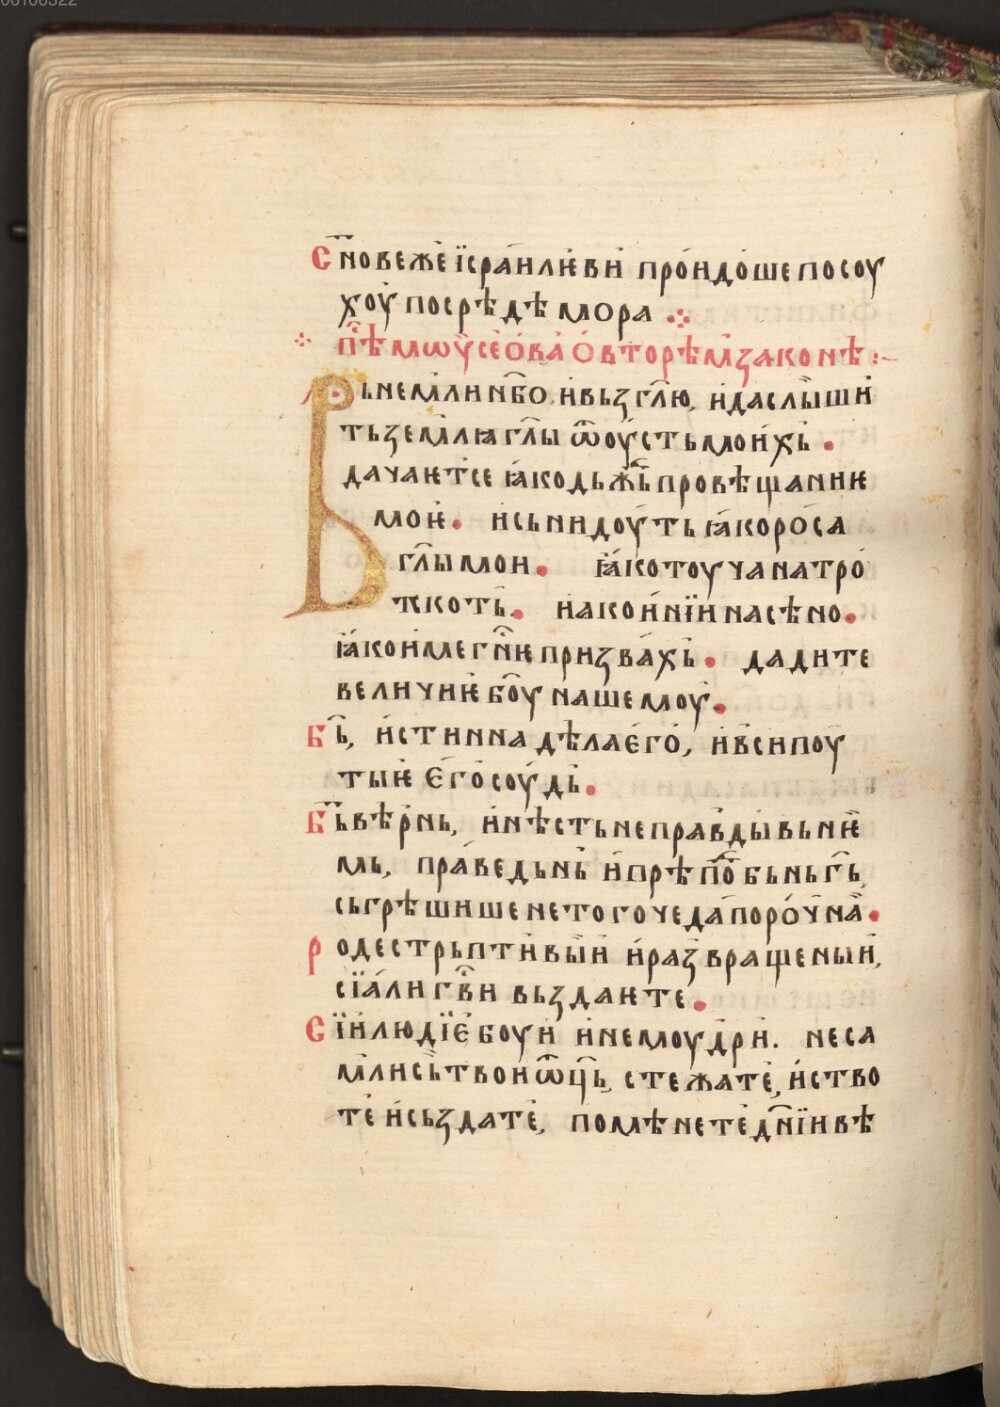 00108322
Сн҃ове же і҆сра́нлѥви про́идо́ше посоу
хоу посрѣдѣ мора
пѣ҃ мѡѵ҆сео́ва о́ вторѣм законѣ :~
Вьнемлин҃бо, и҆вьзгл҃ю, и҆даслыши
тьземлꙗ гл҃ы ѿоу́стьмои́хь .
дачаѥтсе ꙗ́кодьжь провѣщаниѥ
моѥ . исьнидоу́ть ꙗ́короса
гл҃ы мои . ꙗ́котоуча натро́
скоть . ꙗкои́нїи насѣно .
ꙗ́коиме гн҃ѥ призва́хь . дадите
величиѥ бо҃у нашемоу .
Бь҃, и́стинна дѣлаѐго̀, и҆вси поу
тыѥ є҆го̀ соу́дь .
Бь҃ вѣрнь, и҆нѣсть неправды вь нѥ
мь, пра́ведьнь и҆ прѣпо҃бьнь гь҃,
сьгрѣшише не того чеда́ поро́чна .
Родестрьптивыи и҆развращеныи,
сїа́ли гв҃и вьздаѥте .
Сїи людїє боуи и҆немоудри . неса
мли сь твои ѿць҃, стежате, и҆ство
те и҆сьздате, помѣнете дн҃їи вѣ